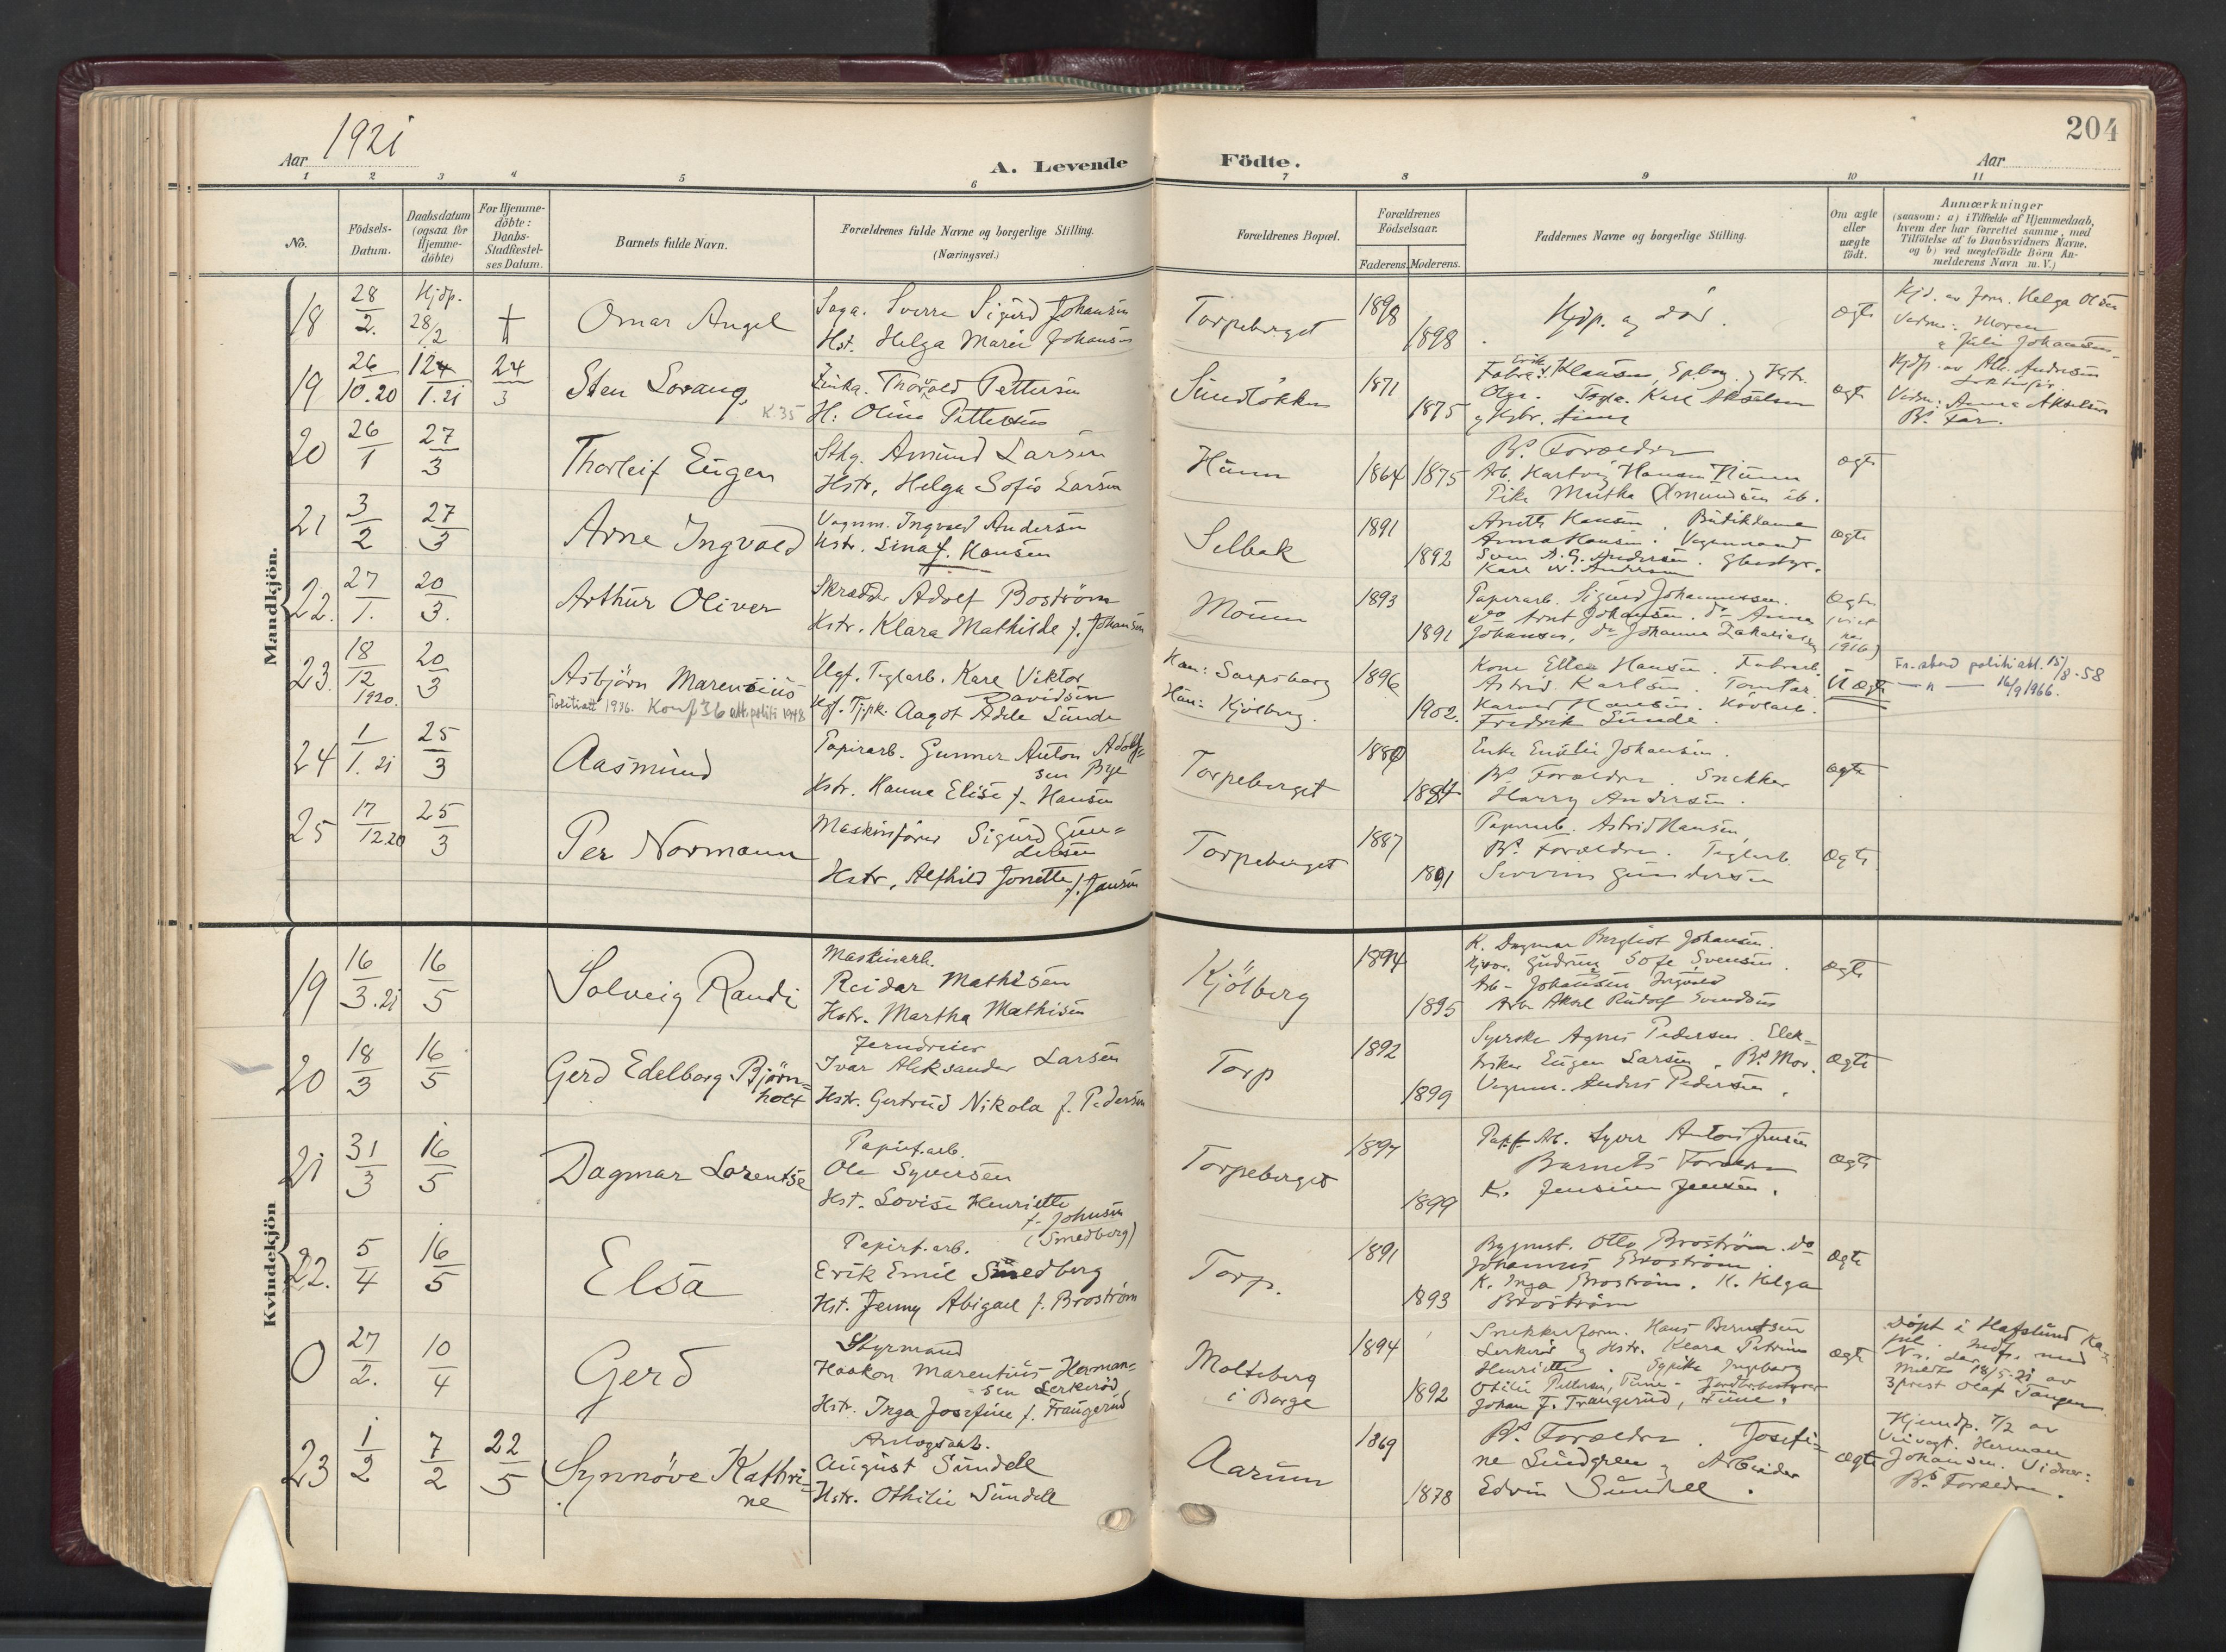 Aar 1921
A. Levende Födte.
Aar
204
1 2 3 4 5 6 7 8 9 10 11
No.
Födsels-
Datum.
Daabsdatum
(ogsaa for
Hjemme-
döbte)
For Hjemme-
döbte:
Daabs-
Stadfæstel-
ses Datum.
Barnets fulde Navn.
Forældrenes fulde Navne og borgerlige Stilling.
(Næringsvei.)
Forældrenes Bopæl.
Forældrenes
Födselsaar.
Faderens. Moderens.
Faddernes Navne og borgerlige Stilling.
Om ægte
eller
uægte
födt.
Anmærkninger
(saasom: a) i Tilfælde af Hjemmedaab,
hvem der har forrettet samme, med
Tilföielse af to Daabsvidners Navne.
og b) ved uægtefödte Börn An-
melderens Navn m.V.)
Mandkjön.
18 28/2. Hjdp. 28/2 †
Omar Angel
Saga. Sverre Sigurd Johansen
Hst. Helga Marie Johansen
Torpeberget
1898
1898
Hjdp. og död.
ægte
Hjd. av Jorm. Helga Olsen
Vidne: Moren
& Julie Johansen.
19 26/10.20 24/3
Sten Lorang
K.35
Thorvald Pettersen
H. Oline Pettersen
Sundlökken
1871
1875
Olga. Karl Akselsen
ægte
Hjdp. av Alb. Andresen
Vidne: Anna Akselsen
Bs. Far.
20 26/1 27/3
Thorleif Eugen
Sthg. Amund Larsen
Hstr. Helga Sofie Larsen
Hunn
1864 1875
Bs. Forældre
Arb. Hartvig Hansen Hunn
Pike Martha Amundsen ib.
ægte
21 3/2 27/3
Arne Ingvald
Vognm. Ingvald Andersen
Hstr. Lina f. Hansen
Selbak
1891
1892
Anette Hansen. Butikdame
Anna Hansen. Vognmand
Sven A. G. Andersen.
Karl W. Andersen
ægte
22. 27/1. 20/3.
Arthur Oliver
Skrædder Adolf Boström
Hstr. Klara Mathilde f. Johansen
Moum
1893
1891
Papirarb. Sigurd Johannessen.
do Arnt Johansen. do Anna
Johansen, do Johanna Zakariasen
Ægte
1916)
23. 18/12 1920. 20/3
Asbjörn Marensius
Politiatt 1936. Konf 36 att.politi 1948
Ugf. Teglarb. Karl Viktor
Davidsen
Ugf. Tjpk. Aagot Adele Sunde
Han: Sarpsborg
Hun: Kjölberg.
1896
1902.
Kone Ellen Hansen. Fabrarb.
Astrid Karlsen. Tomtar.
Harald Hansen. Hövlarb.
Fredrik Sunde.
Uægte
Fr. stad politi att. 15/8-58
— " — 16/9 1966.
24 1/1. 21 25/3
Aasmund
Papirarb. Gunner Anton Adolf=
sen Bye
Hstr. Hanna Elise f. Hansen
Torpeberget
1880
1884
Enke Emilie Johansen.
Bs. Forældre. Snekker
Harry Andersen.
ægte
25 17/12.20 25/3
Per Normann
Maskinförer Sigurd Gun=
dersen
Hstr. Alfhild Jonette f. Jansen
Torpeberget
1887
1891
Papirarb. Astrid Hansen,
Bs. Forældre. Teglarb.
Severin Gundersen
Ægte
Kvindekjön
19 16/3.21 16/5
Solveig Randi
Maskinarb.
Reidar Mathisen
Hstr. Martha Mathisen
Kjölberg
1894
1895
K. Dagmar Bergliot Johansen.
Gudrun Sofe Svensen.
Arb- Johansen Ingvald
Arb. Aksel Rudolf Svendsen
ægte
20 18/3 16/5
Gerd Edelborg Björn=
holt
Jerndreier
Ivar Aleksander Larsen
Hstr. Gertrud Nikola f. Pedersen
Torp
1892
1899
Syerske Agnes Pedersen. Elek=
triker Eugen Larsen. Bs. Mor.
Vognm. Anders Pedersen.
Ægte
21 31/3 16/5
Dagmar Lorentse
Papirf.arb.
Ole Syversen
Hst. Lovise Henriette
f. Johnsen
(Smedberg)
Torpeberget
1897
1899
Papf. Arb. Syver Anton Jensen
Barnets Forældre
K. Jensine Jensen.
Ægte
22. 5/4 16/5
Elsa
Papirf.arb.
Erik Emil Smedberg
Hst. Jenny Abigael f. Broström
Torp.
1891
1893
Bygmst. Otto Broström. do
Johannes Broström.
K. Inga Broström. K. Helga
Broström
Ægte
0 27/2. 10/4
Gerd
Styrmand
Haakon Marentius Herman=
sen Lerkeröd
Hstr. Inga Josefine f. Frangerud
Molteberg
i Borge
1894
1892
Snekkerform. Hans Berntsen
Lerkeröd og Hstr. Klara Petrine
Henriette. Sypike Ingeborg
Othilie Pettersen,
Johan F. Frangerud,
ægte
Döpt i Hafslund Ka=
pel. Indf. med
Nr. der
Meldt 18/5-21 av
Sprest Olaf Tangen.
23 1/2 7/2 22/5
Synnöve Kathri=
ne
August Sundell
Hstr. Othilie Sundell
Aarum
1869
1878
Bs. Forældre. Josefi=
ne Lindgren og Arbeider
Edvin Sundell.
ægte
Hjemdp. 7/2 av
Veivogt. Herman
Johansen. Vidner:
Bs. Forældre.